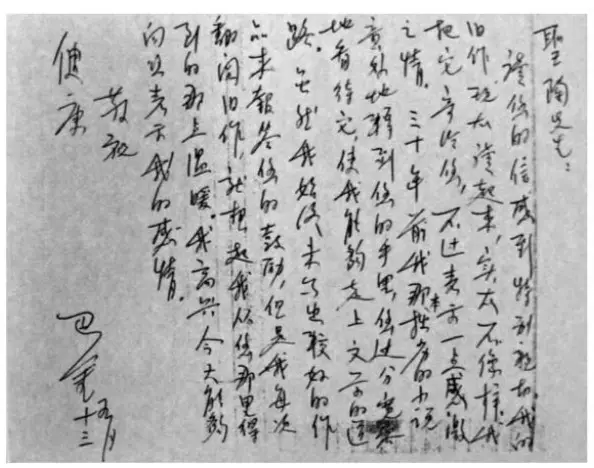 聖陶先生:
读您的信感到特别親切。我的
旧作现在读起来,实在不像樣,我
把它寄给您,不过表示一点感激
之情。三十年前我那本拙劣的小说
意外地轉到您的手里,您过分宽容
地看待它,使我能夠走上文学的道
路。虽然我始终未写出较好的作
品来報答您的鼓励,但是我每次
翻阅旧作,就想起我从您那里得
到的那点温暖。我高兴今天能夠
向您表示我的感情。
敬祝
健康
巴金 五月
十三